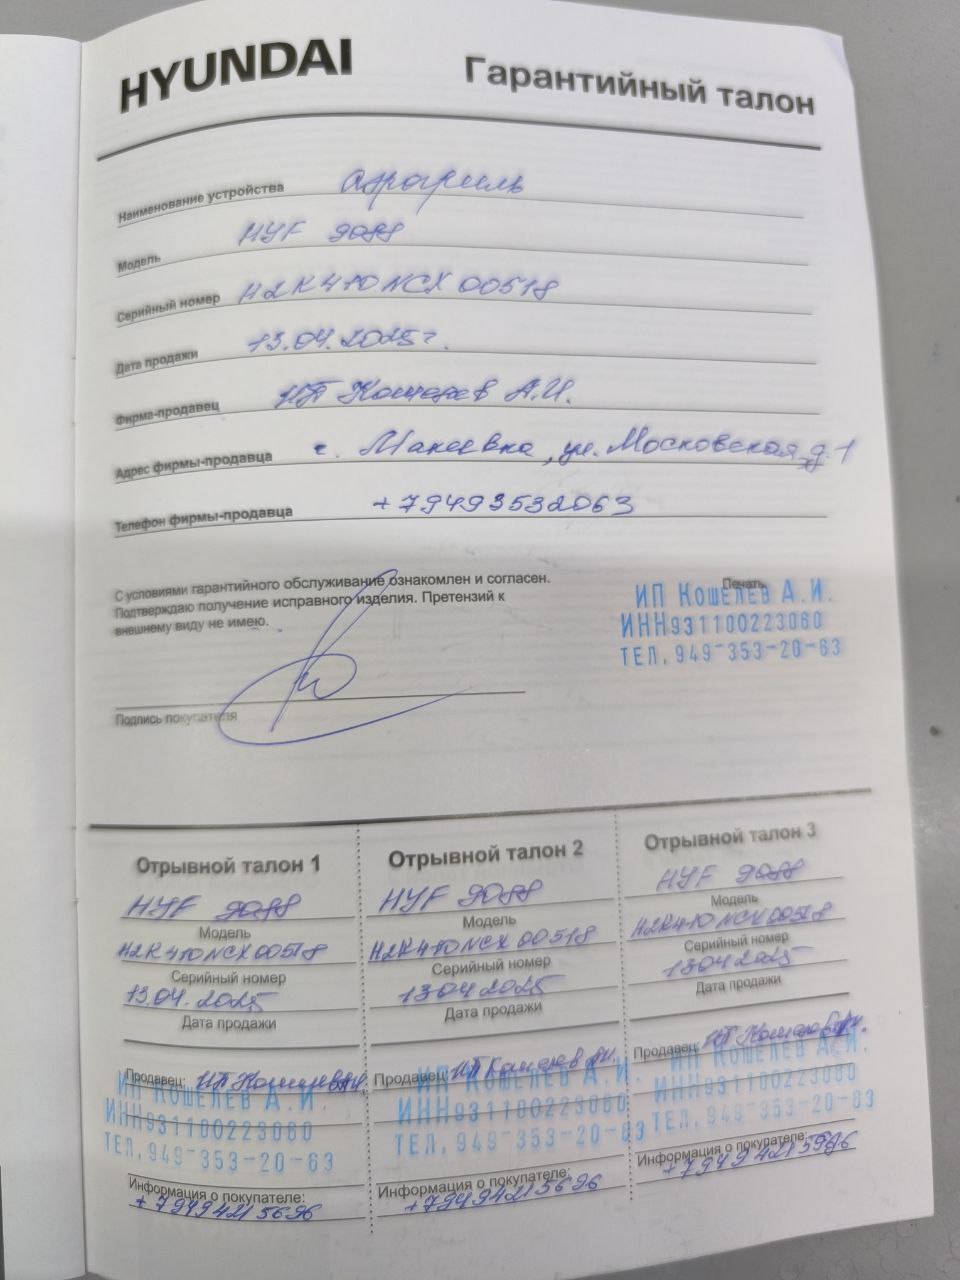 HYUNDAI
Гарантийный талон
Наименование устройства аэрогриль
Модель HYF 9088
Серийный номер H2K410NCX00518
Дата продажи 13.04.2025г.
Фирма-продавец ИП Кошелев А.И.
Адрес фирмы-продавца г. Макеевка, ул. Московская, д.1
Телефон фирмы-продавца +79493532063
С условиями гарантийного обслуживание ознакомлен и согласен.
Подтверждаю получение исправного изделия. Претензий к
внешнему виду не имею.
Печать
ИП Кошелев А.И.
ИНН931100223060
ТЕЛ.949-353-20-63
Подпись покупателя
Отрывной талон 1
HYF 9088
Модель
H2K410NCX00518
Серийный номер
13.04.2025
Дата продажи
Продавец: ИП Кошелев А.И.
ИП Кошелев А.И.
ИНН931100223060
ТЕЛ.949-353-20-63
Информация о покупателе:
+79494215696
Отрывной талон 2
HYF 9088
Модель
H2K410NCX00518
Серийный номер
13042025
Дата продажи
Продавец: ИП Кошелев А.И.
ИП Кошелев А.И.
ИНН931100223060
ТЕЛ.949-353-20-63
Информация о покупателе:
+79494215696
Отрывной талон 3
HYF 9088
Модель
H2K410NCX00518
Серийный номер
13042025
Дата продажи
Продавец: ИП Кошелев А.И.
ИП Кошелев А.И.
ИНН931100223060
ТЕЛ.949-353-20-63
Информация о покупателе:
+79494215696